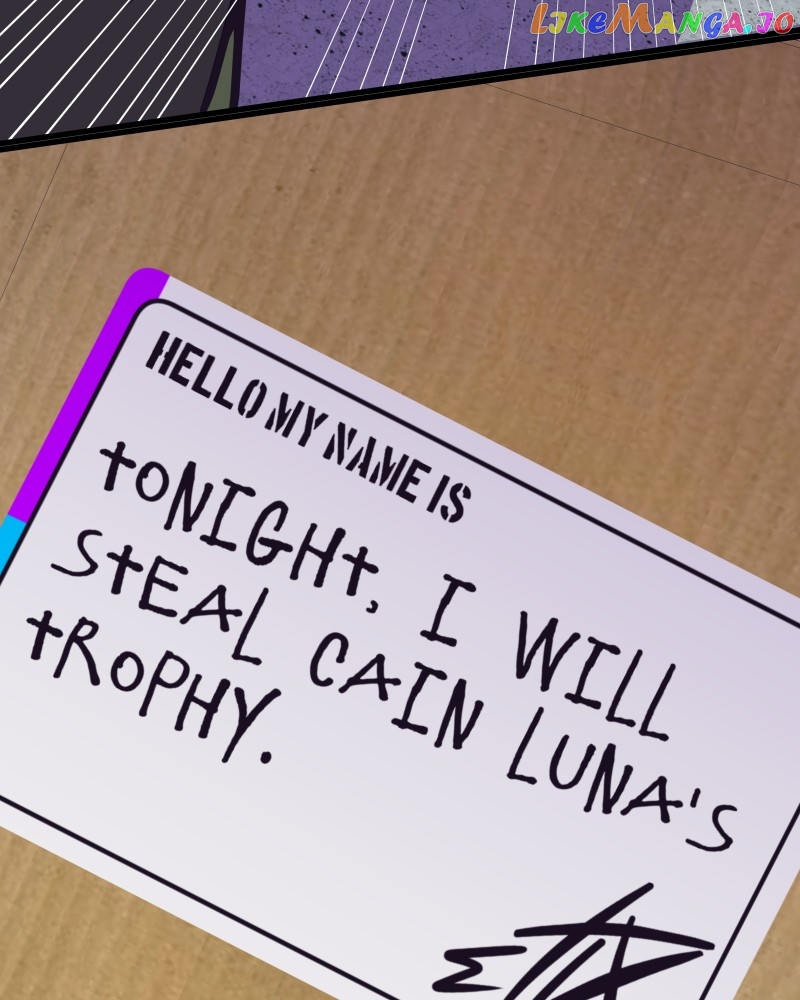 LIKEMANGA.IO
HELLO MY NAME IS
tONIGHt, I WILL
StEAL CAIN LUNA'S
tROPHY.